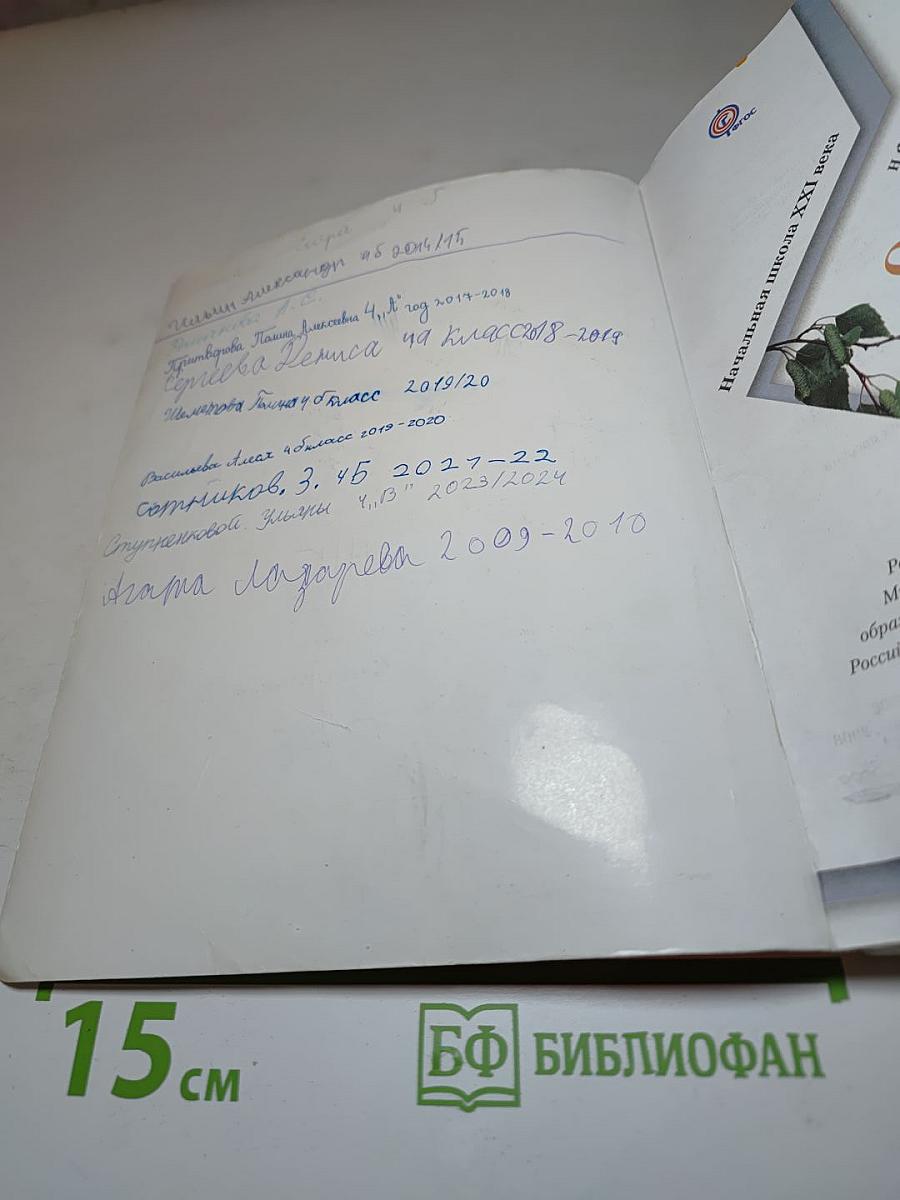 Ильин Александр 4б 2014/15
А. С.
Притворова Полина Алексеевна 4 „А“ год 2017-2018
Сергеева Дениса 4а класс 2018-2019
Шеметова Полина 4 б класс 2019/20
Васильева Алеся 4 б класс 2019-2020
Сотников. З. 4Б 2021-22
Ступненковой Ульяны 4 „В" 2023/2024
Агата Лазарева 2009-2010
ФГОС
Начальная школа XXI века
15 см
БФ БИБЛИОФАН